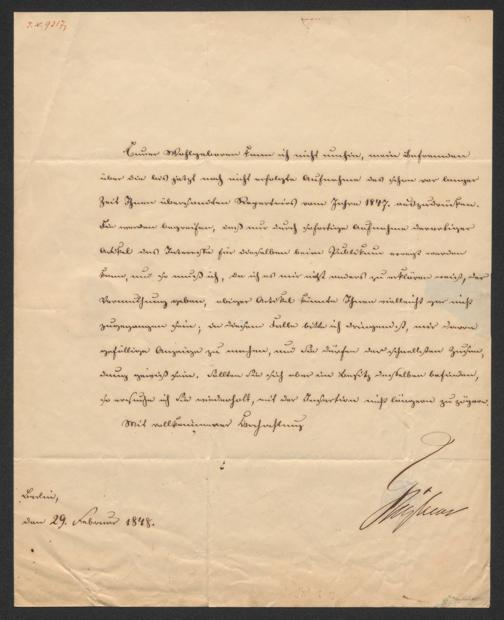 I. N. 9217,
Euer Wohlgeboren kann ich nicht umhin, mein Befremden
über die bis jetzt noch nicht erfolgte Aufnahme des schon vor langer
Zeit Ihnen übersandten Repertoires vom Jahre 1847. auszudrücken.
Sie werden begreifen, daß nur durch sofortige Aufnahme derartiger
Artikel das Interesse für dieselben beim Publikum erregt werden
kann, und so muß ich, da ich es mir nicht anders zu erklären weiß, der
Vermuthung geben, obiger Artikel könnte Ihnen vielleicht gar nicht
zugegangen sein; in diesem Falle bitte ich dringendst, mir davon
gefällige Anzeige zu machen, und Sie dürfen der schnellsten Zusen,
dung gewiß sein. Sollten Sie sich aber im Besitz desselben befinden,
so ersuche ich Sie wiederholt, mit der Insertion nicht länger zu zögern.
Mit vollkommener Hochachtung
Berlin,
den 29. Februar 1848.